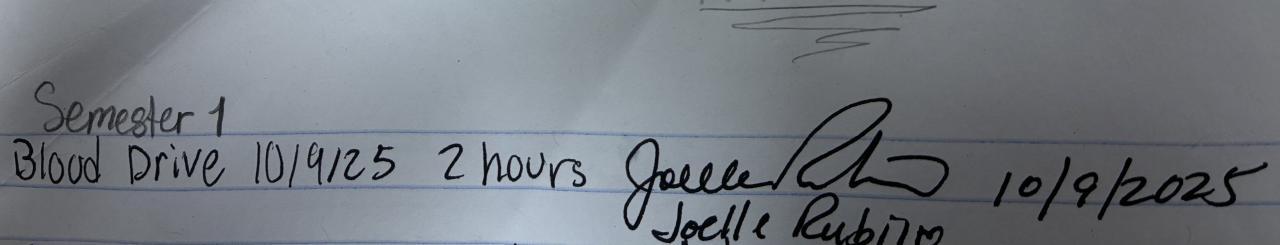 Semester 1
Blood Drive 10/9/25 2 hours Joelle 10/9/2025
Joelle